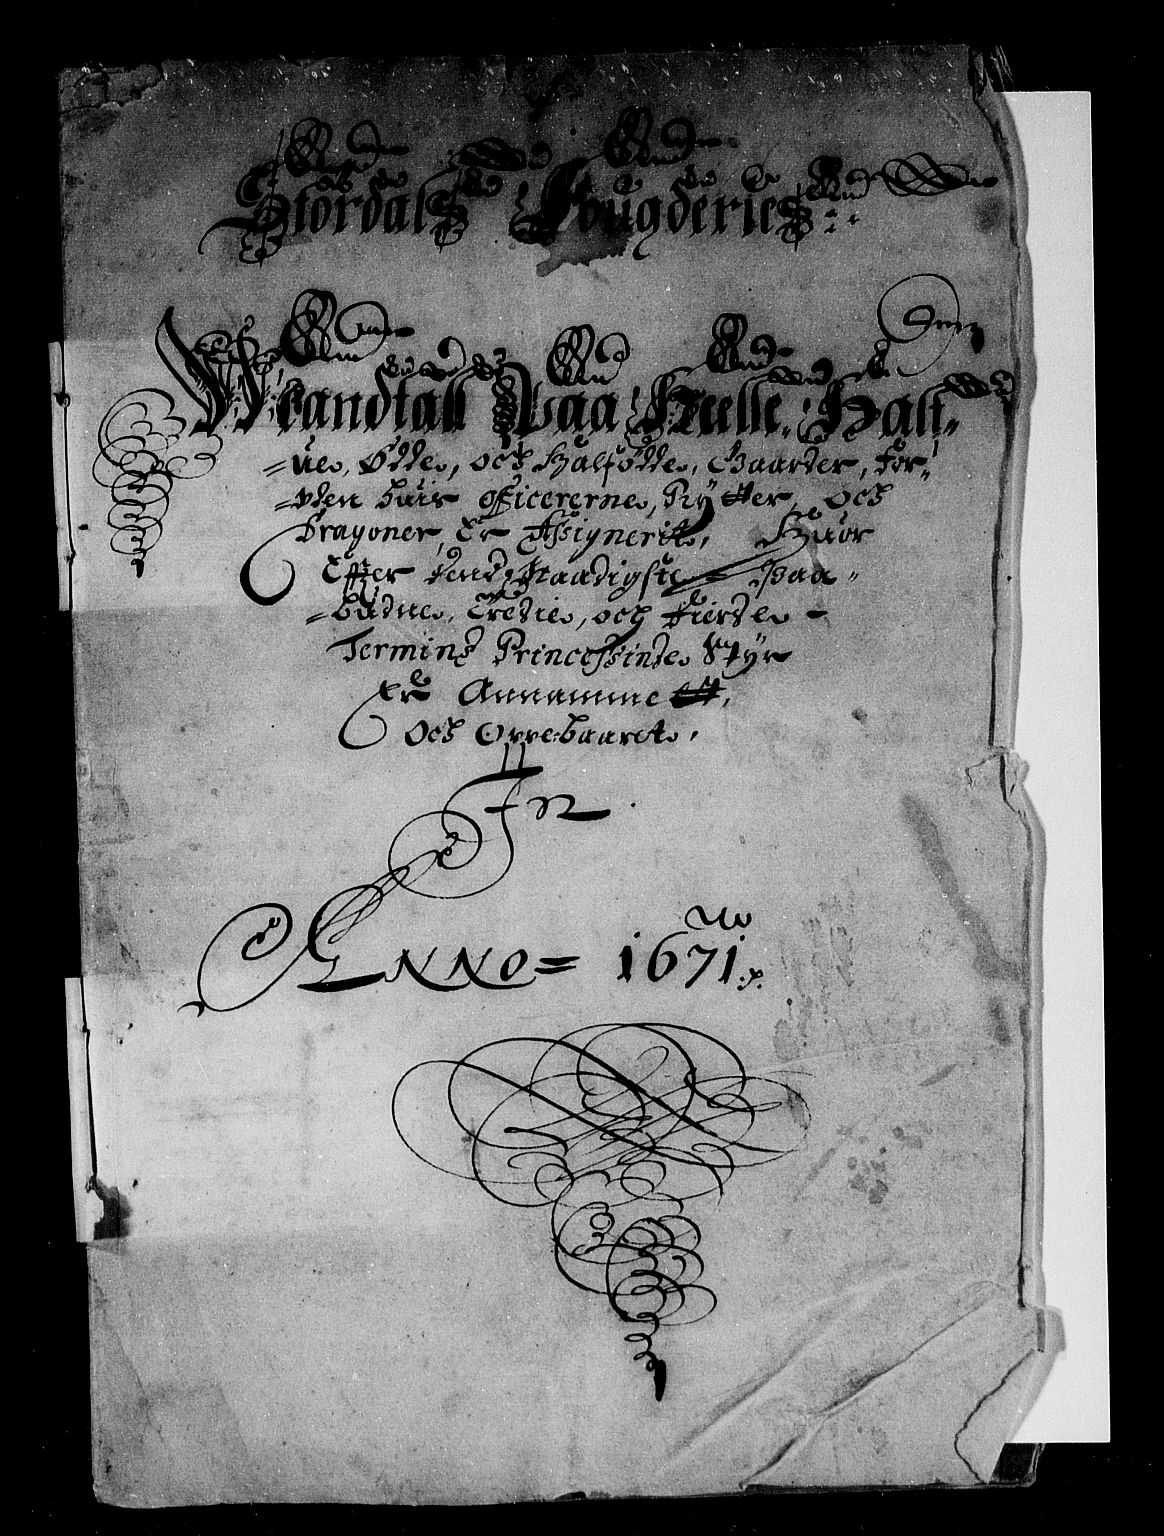 Stördals Fougderies
Mandtall Paa Heelle, Half-
=ue, Ødde, och Halfödde, Gaarder, For-
=uden huis officererne, Rÿtter, och
Dragoner, Er Assignerit, Huor
Effter dend Naadigste Paa-
=budne, Tredie, och Fierde
Termins Princessinde Styr
Er Annamme
Och Oppebaaret,
In
Anno = 1671.